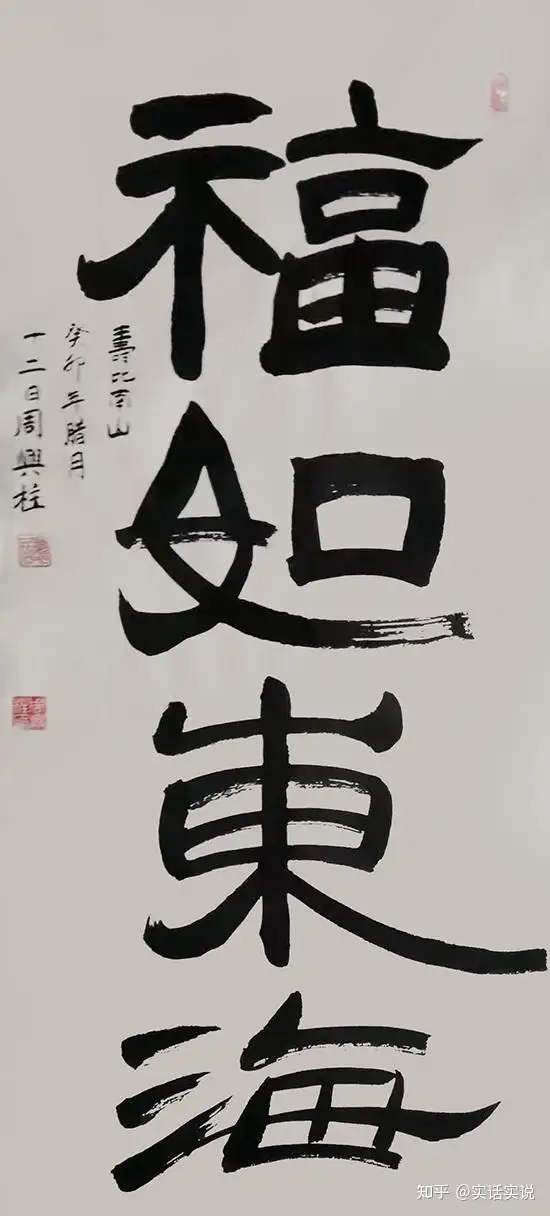 福如東海
壽比南山
癸卯年腊月
十二日周興柱
知乎 @实话实说